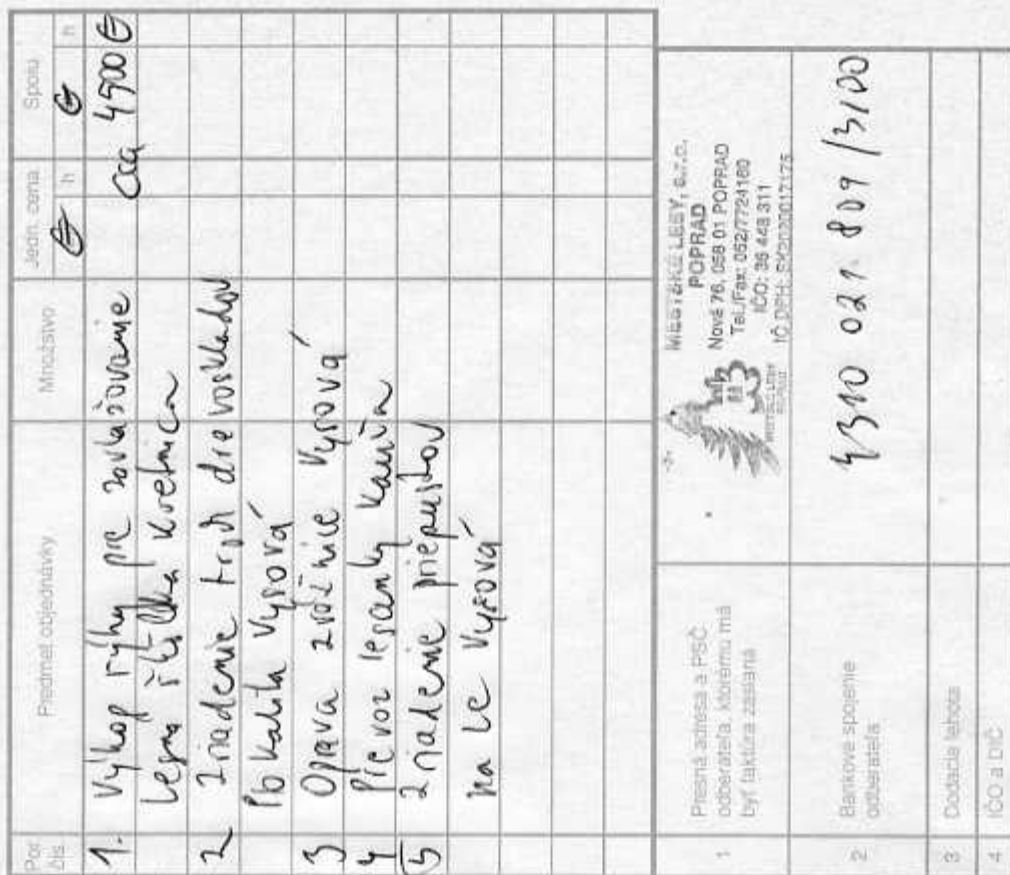 Por. čís. Predmet objednávky Množstvo Jedn. cena Spolu
€ h € h
1. Výkop ryhy pre zavlažovanie cca 4500 €
Lesná škôlka Kvetnica
2 Zriadenie troch drevoskladov
Vyšová
3 Oprava zvážnice Vyšová
4 Prevoz lesanky
5 Zriadenie priepustov
na LC Vyšová
1 Presná adresa a PSČ
odberateľa, ktorému má
byť faktúra zaslaná
MESTSKÉ LESY, s.r.o.
POPRAD
Nová 76, 058 01 POPRAD
Tel./Fax: 052/7724160
IČO: 36 448 311
IČ DPH: SK2020017175
MESTSKÉ LESY
POPRAD
2 Bankové spojenie
odberateľa
4310 021 809 /3100
3 Dodacia lehota
4 IČO a DIČ